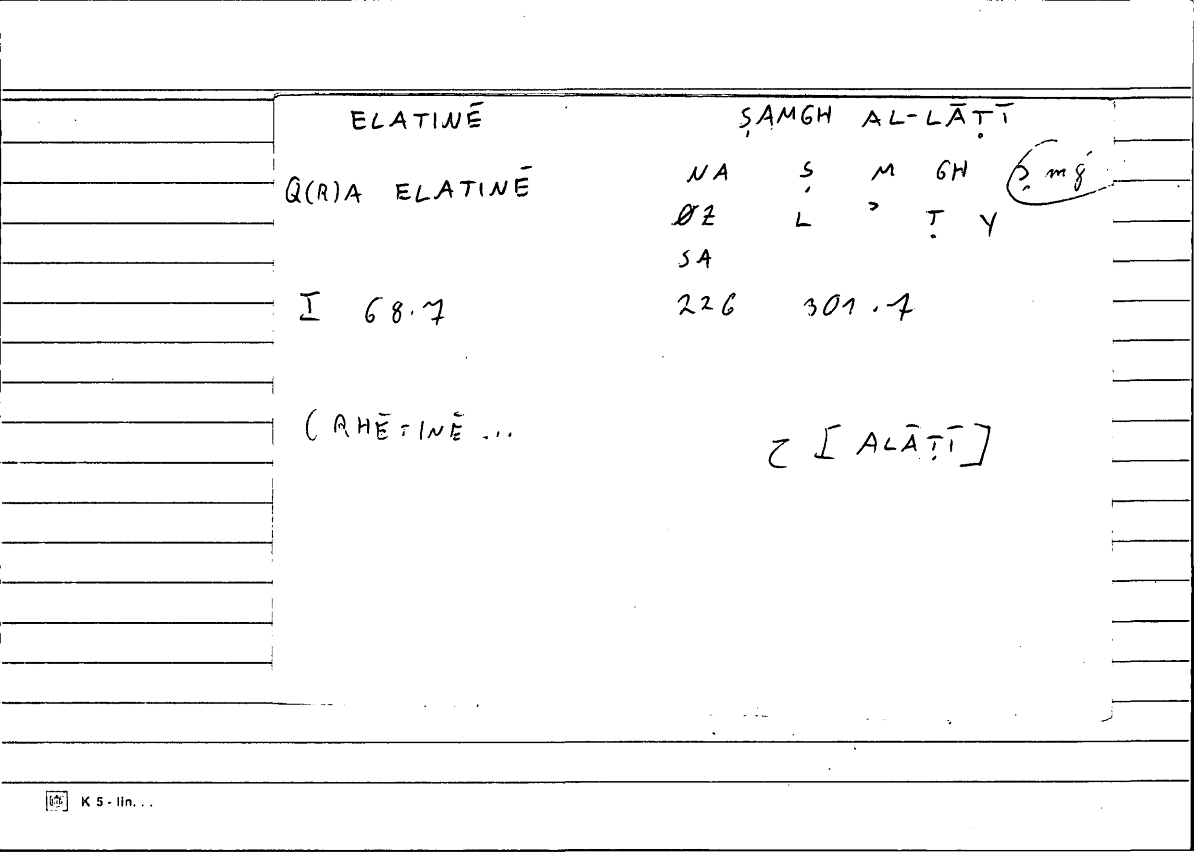 ELATINĒ ṢAMGH AL-LĀṬĪ
Q(R)A ELATINĒ NA Ṣ M GH ṣ mġ
ØZ L ʾ Ṭ Y
SA
I 68.7 226 301.7
(RHĒTINĒ ...
[ALĀṬĪ]
K 5 - lin. . .